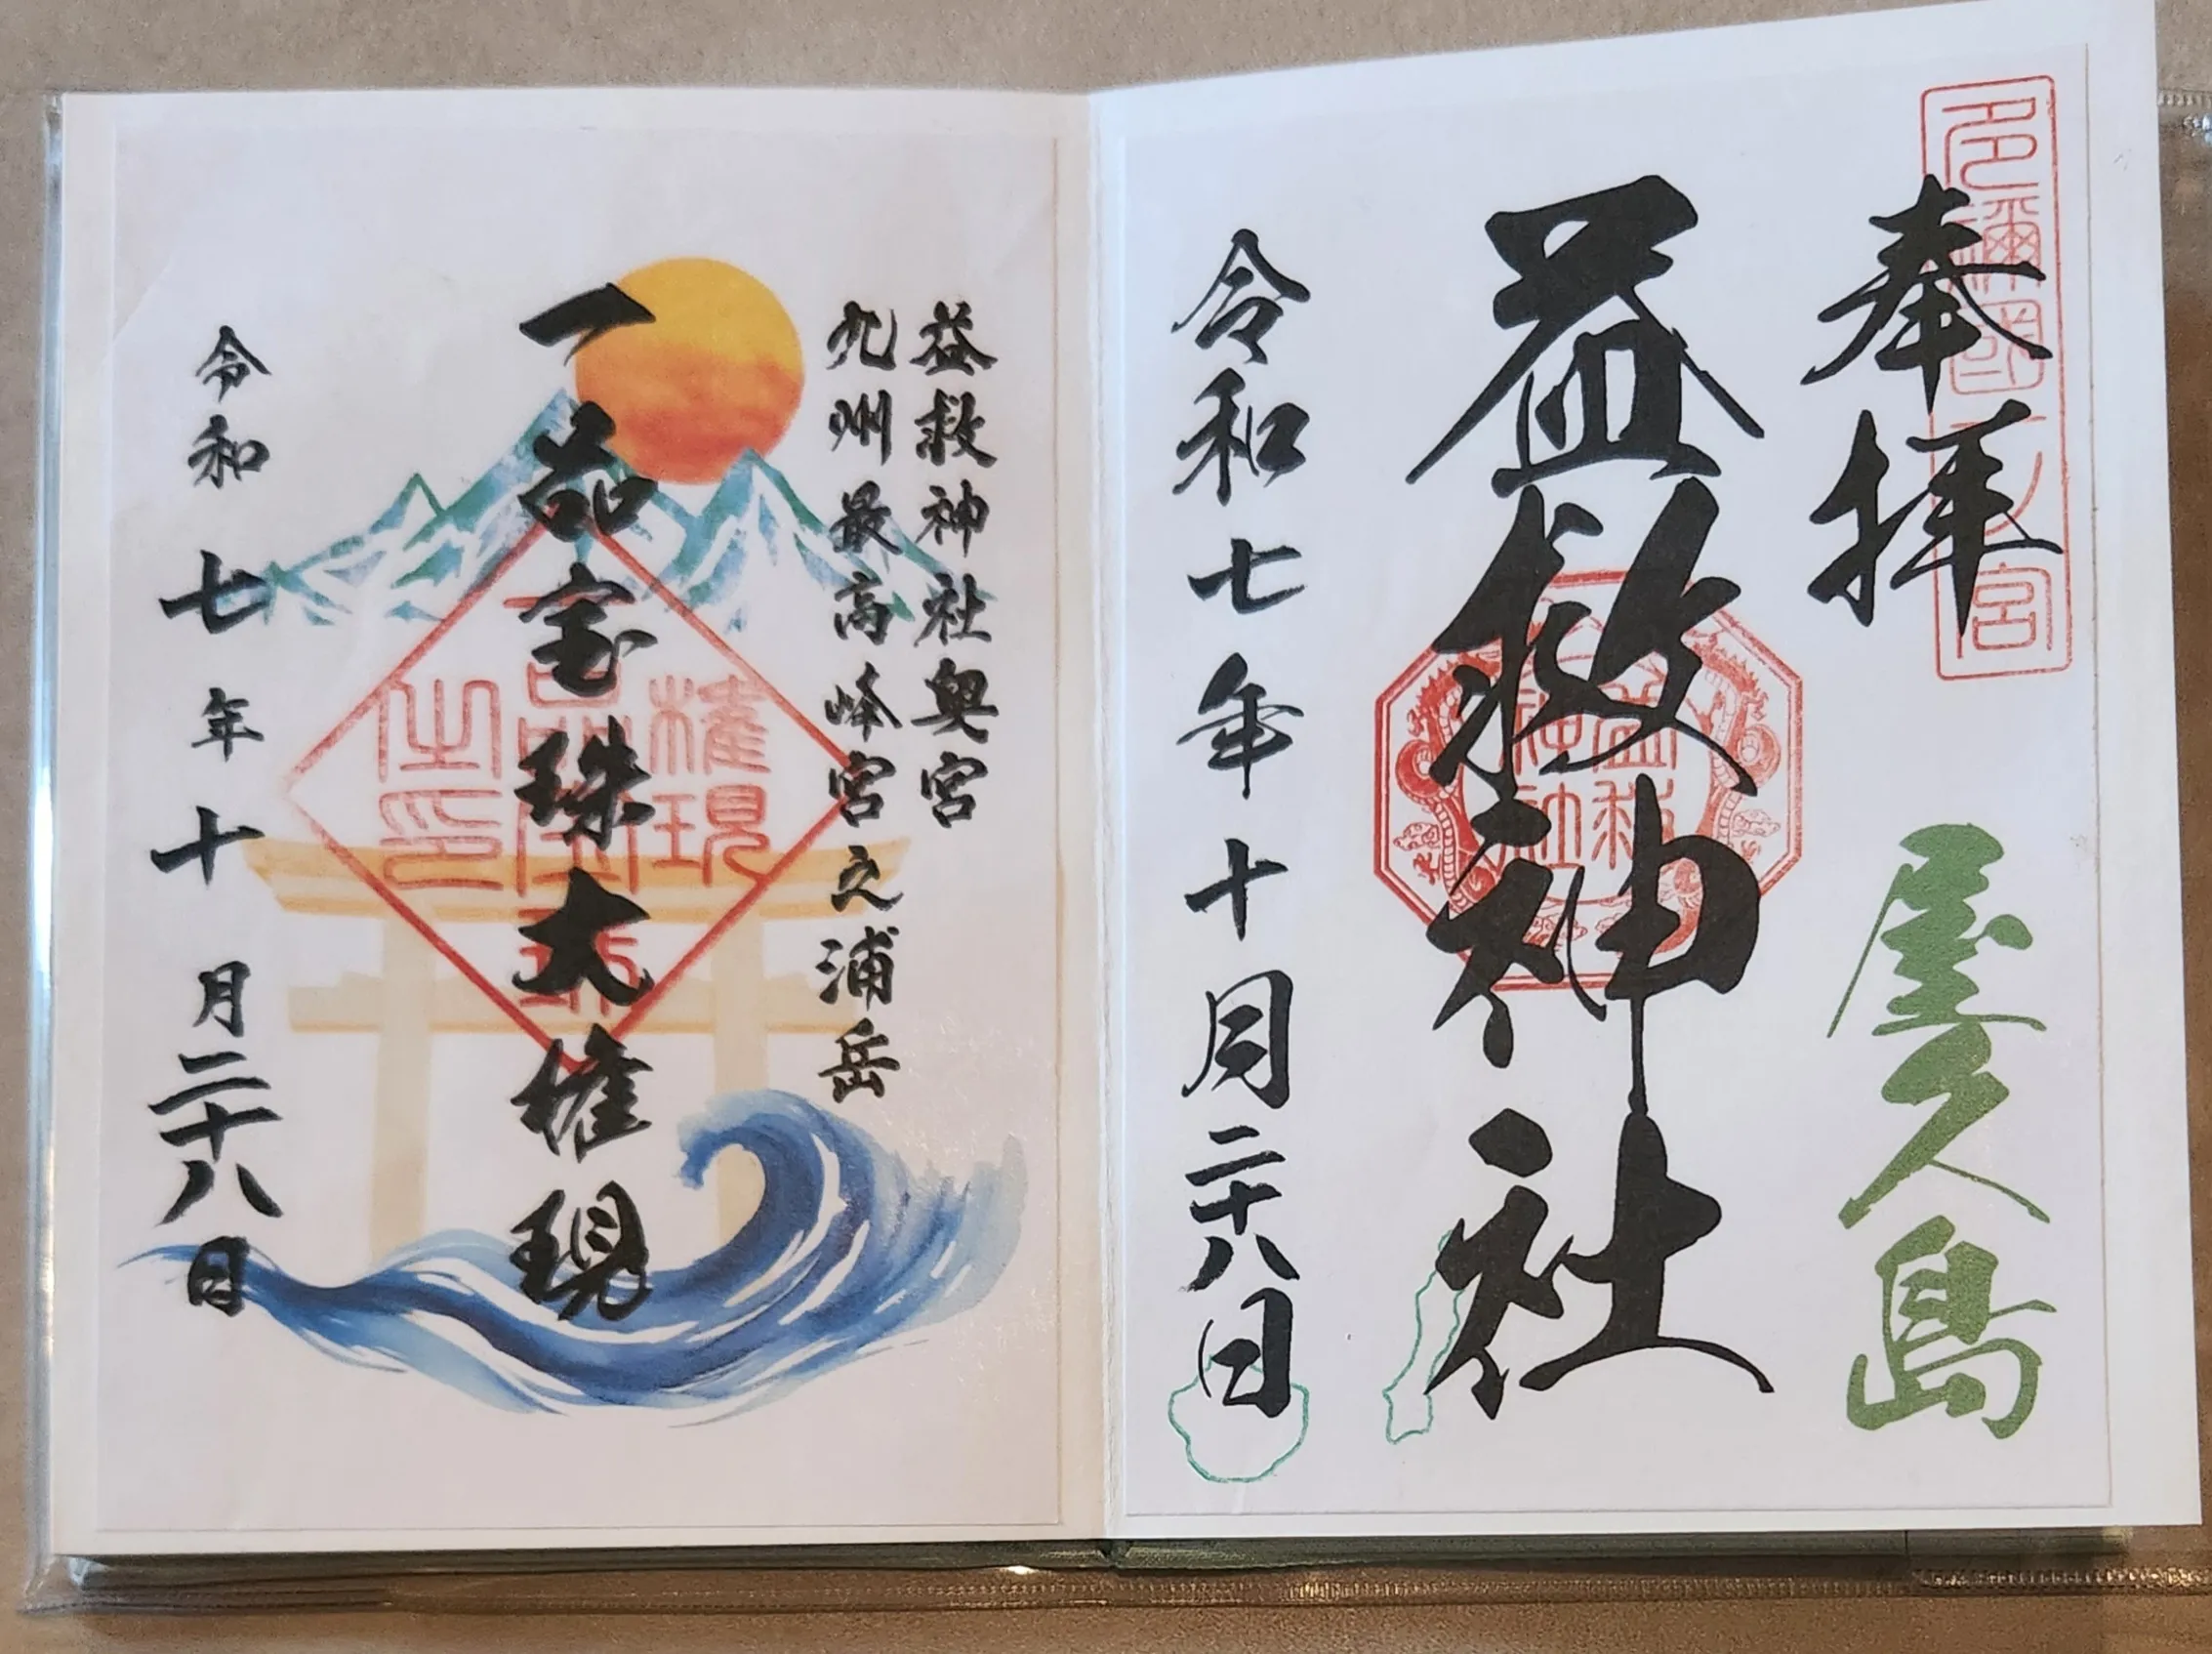 奉拝
屋久島
多禰国一ノ宮
益救神社
益救
神社
令和七年十月二十八日
益救神社奥宮
九州最高峰宮之浦岳
一品宝珠大権現
権現
之印
令和七年十月二十八日